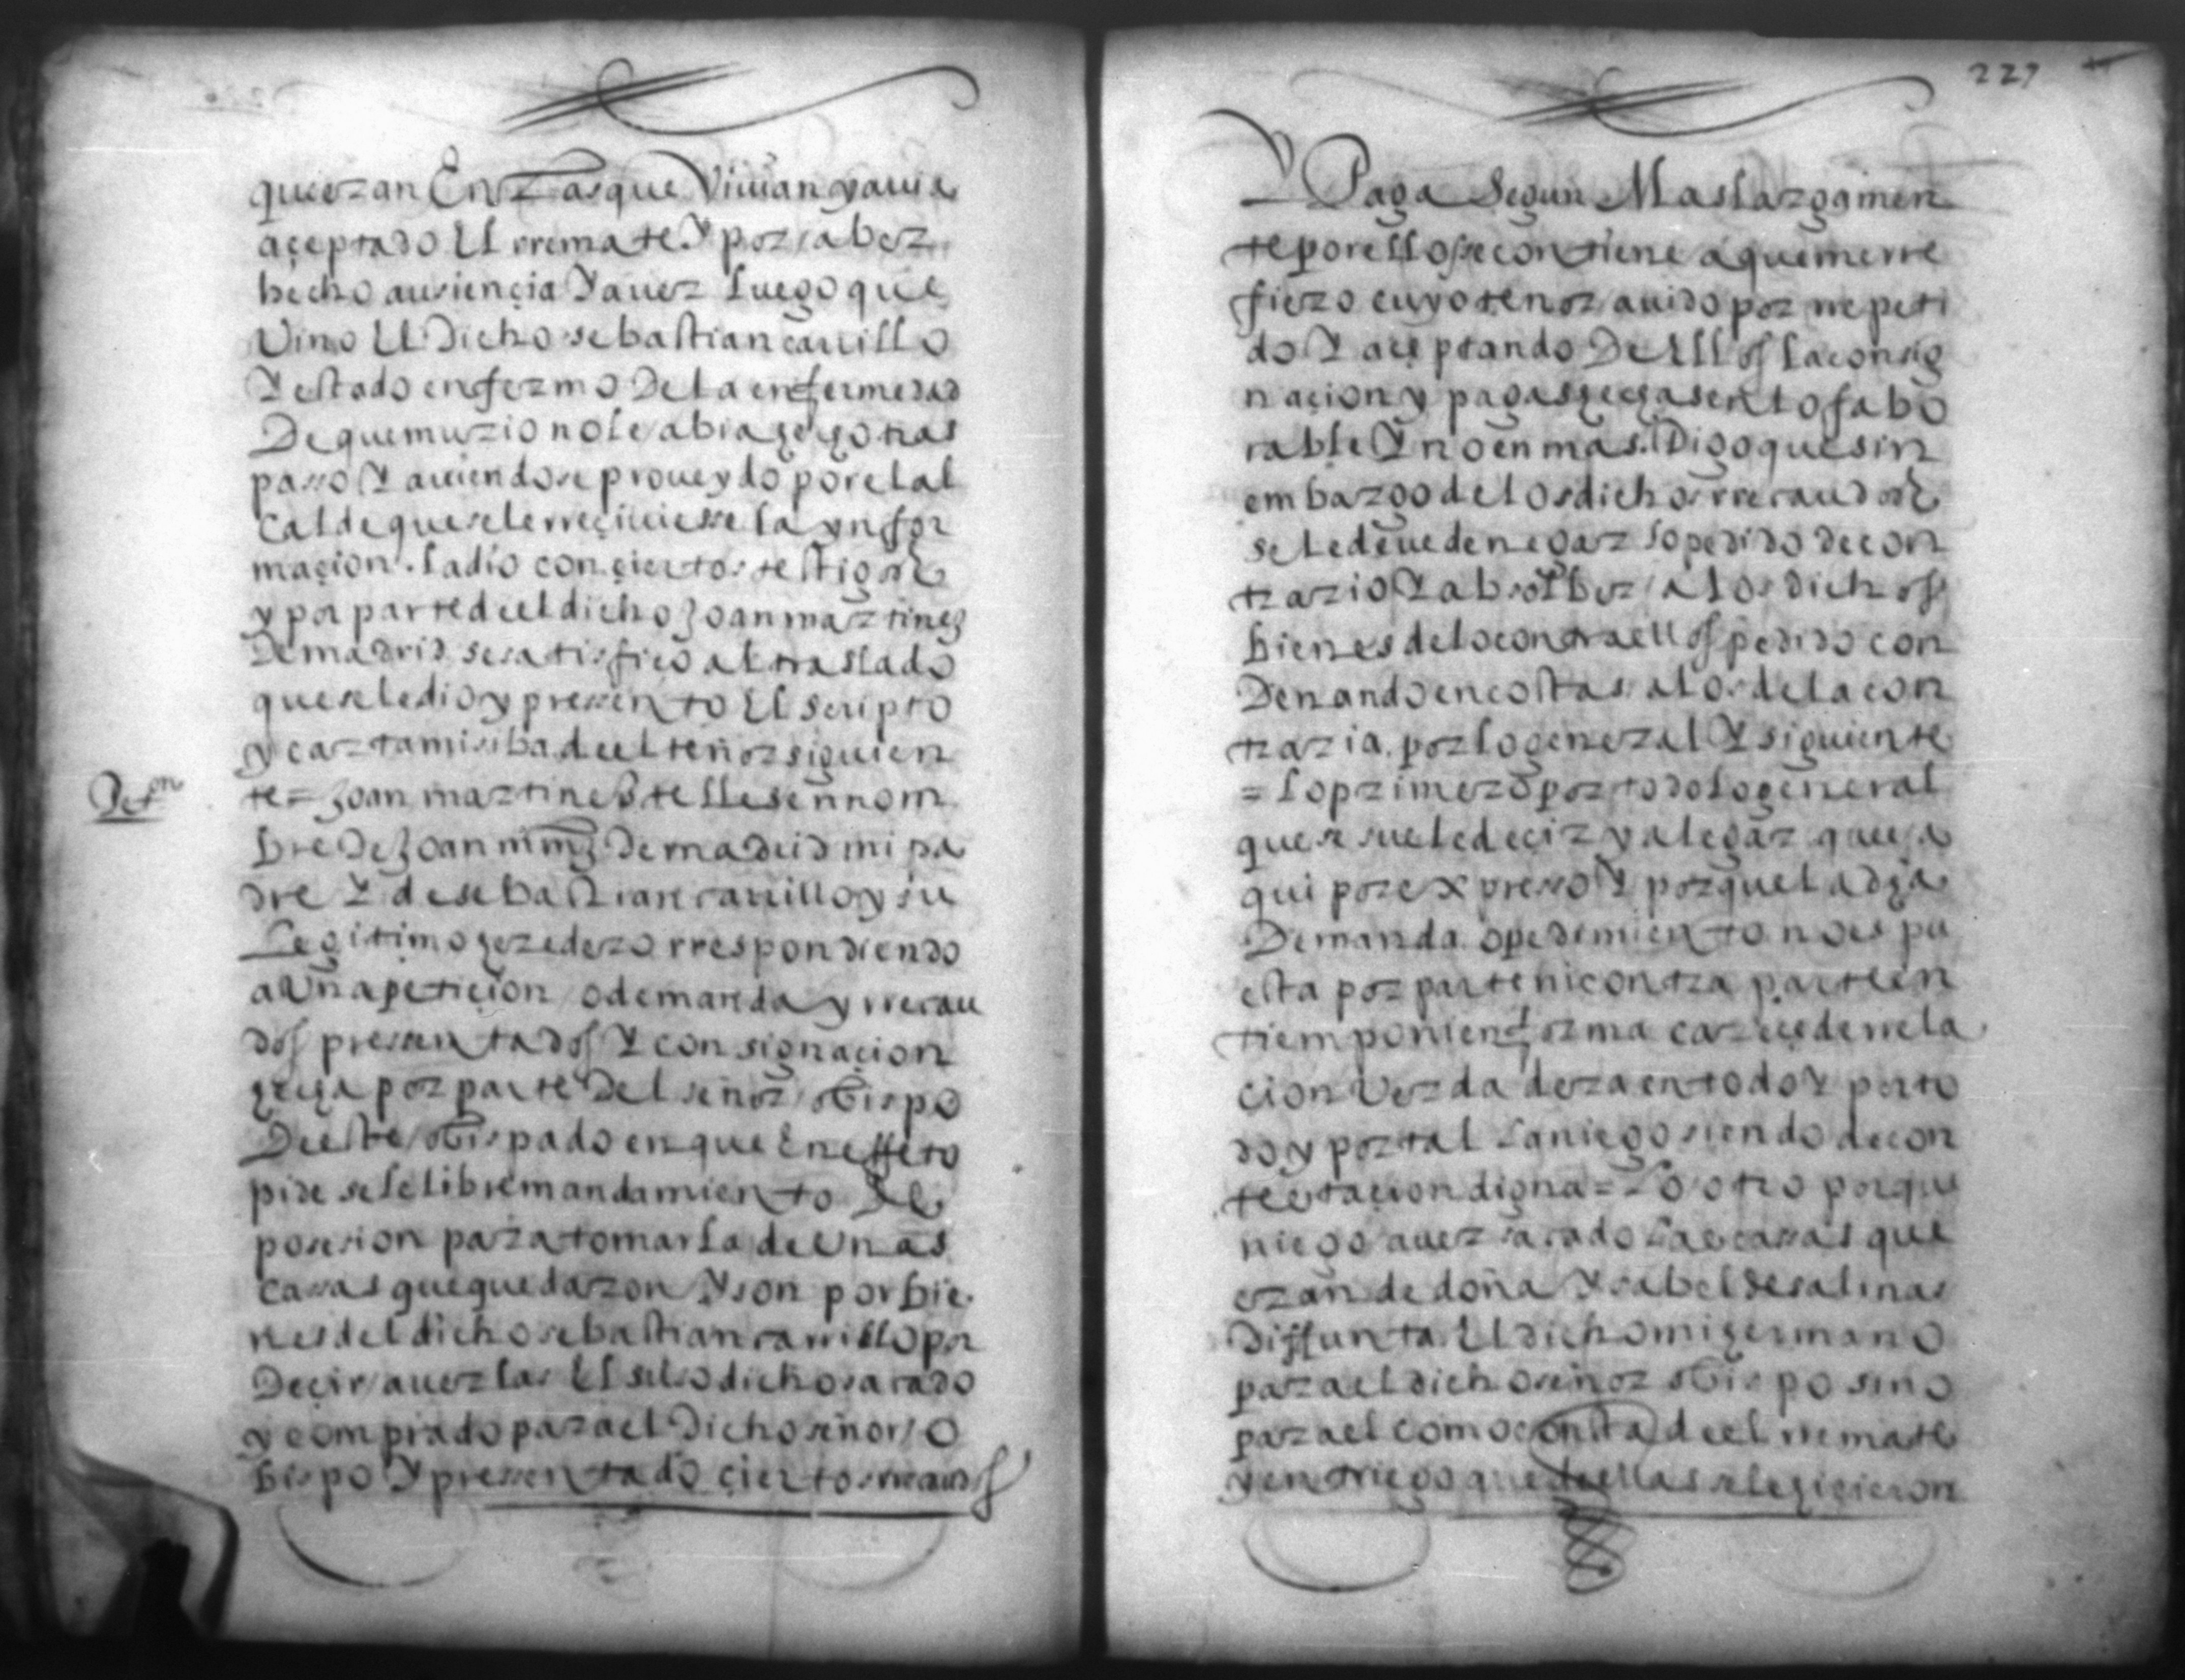 quieran En las que Viuian y auia
açeptado El rremate Y por aber
hecho ausiençia Y auer luego que
Vino El Dicho sebastian carrillo
Y estado enfermo De la enfermedad
De que murio no le abia hecho tras
passo Y auiendose proueydo por el al
calde que se le rreçiuiesse la ynfor
maçion . la dio con çiertos testigos
y por parte deel dicho Joan martinez
De madrid se satisfiço al traslado
que se le dio y pressento El scripto
y carta missiba deel tenor siguien
Petⁿ
te = Joan martines tellesen nom
bre De Joan mrnz De madrid mi pa
dre Y de sebastian carrillo y su
Legitimo heredero rrespondiendo
a Vna petiçion / o demanda y rrecau
dos pressentados Y consignaçion
hecha por parte Del señor obispo
Deeste obispado en que En effeto
pide se le libre mandamiento De
posesion para tomarla de Unas
cassas que quedaron Y son por bie
nes del dicho sebastian carrillo por
Deçir auerlas El susodicho sacado
y comprado para el Dicho señor / O
bispo Y pressentado çiertos rrecaudos
227
Y Paga Segun Mas largamen
te por ellos se contiene a que me rre
fiero cuyo tenor auido por rrepeti
do Y açeptando De Ellos la consig
naçion y pagas hecha sen lo fabo
rable Y no en mas. Digo que sin
embargo de los dichos rrecaudos
se le deue denegar lo pedido de con
trario Y absolber / a los dichos
bienes de lo contra ellos pedido con
Denando en costas a los de la con
traria. por lo general Y siguiente
= lo primero por todo lo general
que se suele deçir y alegar que a
qui por expresso Y porque la dha
Demanda o pedimiento no es pu
esta por parte ni contra parte en
tiempo ni en forma careçe de rrela
cion Verdadera en todo Y por to
do y por tal la niego siendo de con
testaçion digna = Lo otro porque
niego auer sacado las cassas que
eran de doña Ysabel de salinas
Diffunta El dicho mi hermano
para el dicho señor obispo sino
para el como consta deel rremate
y entriego que deellas se le hiçieron